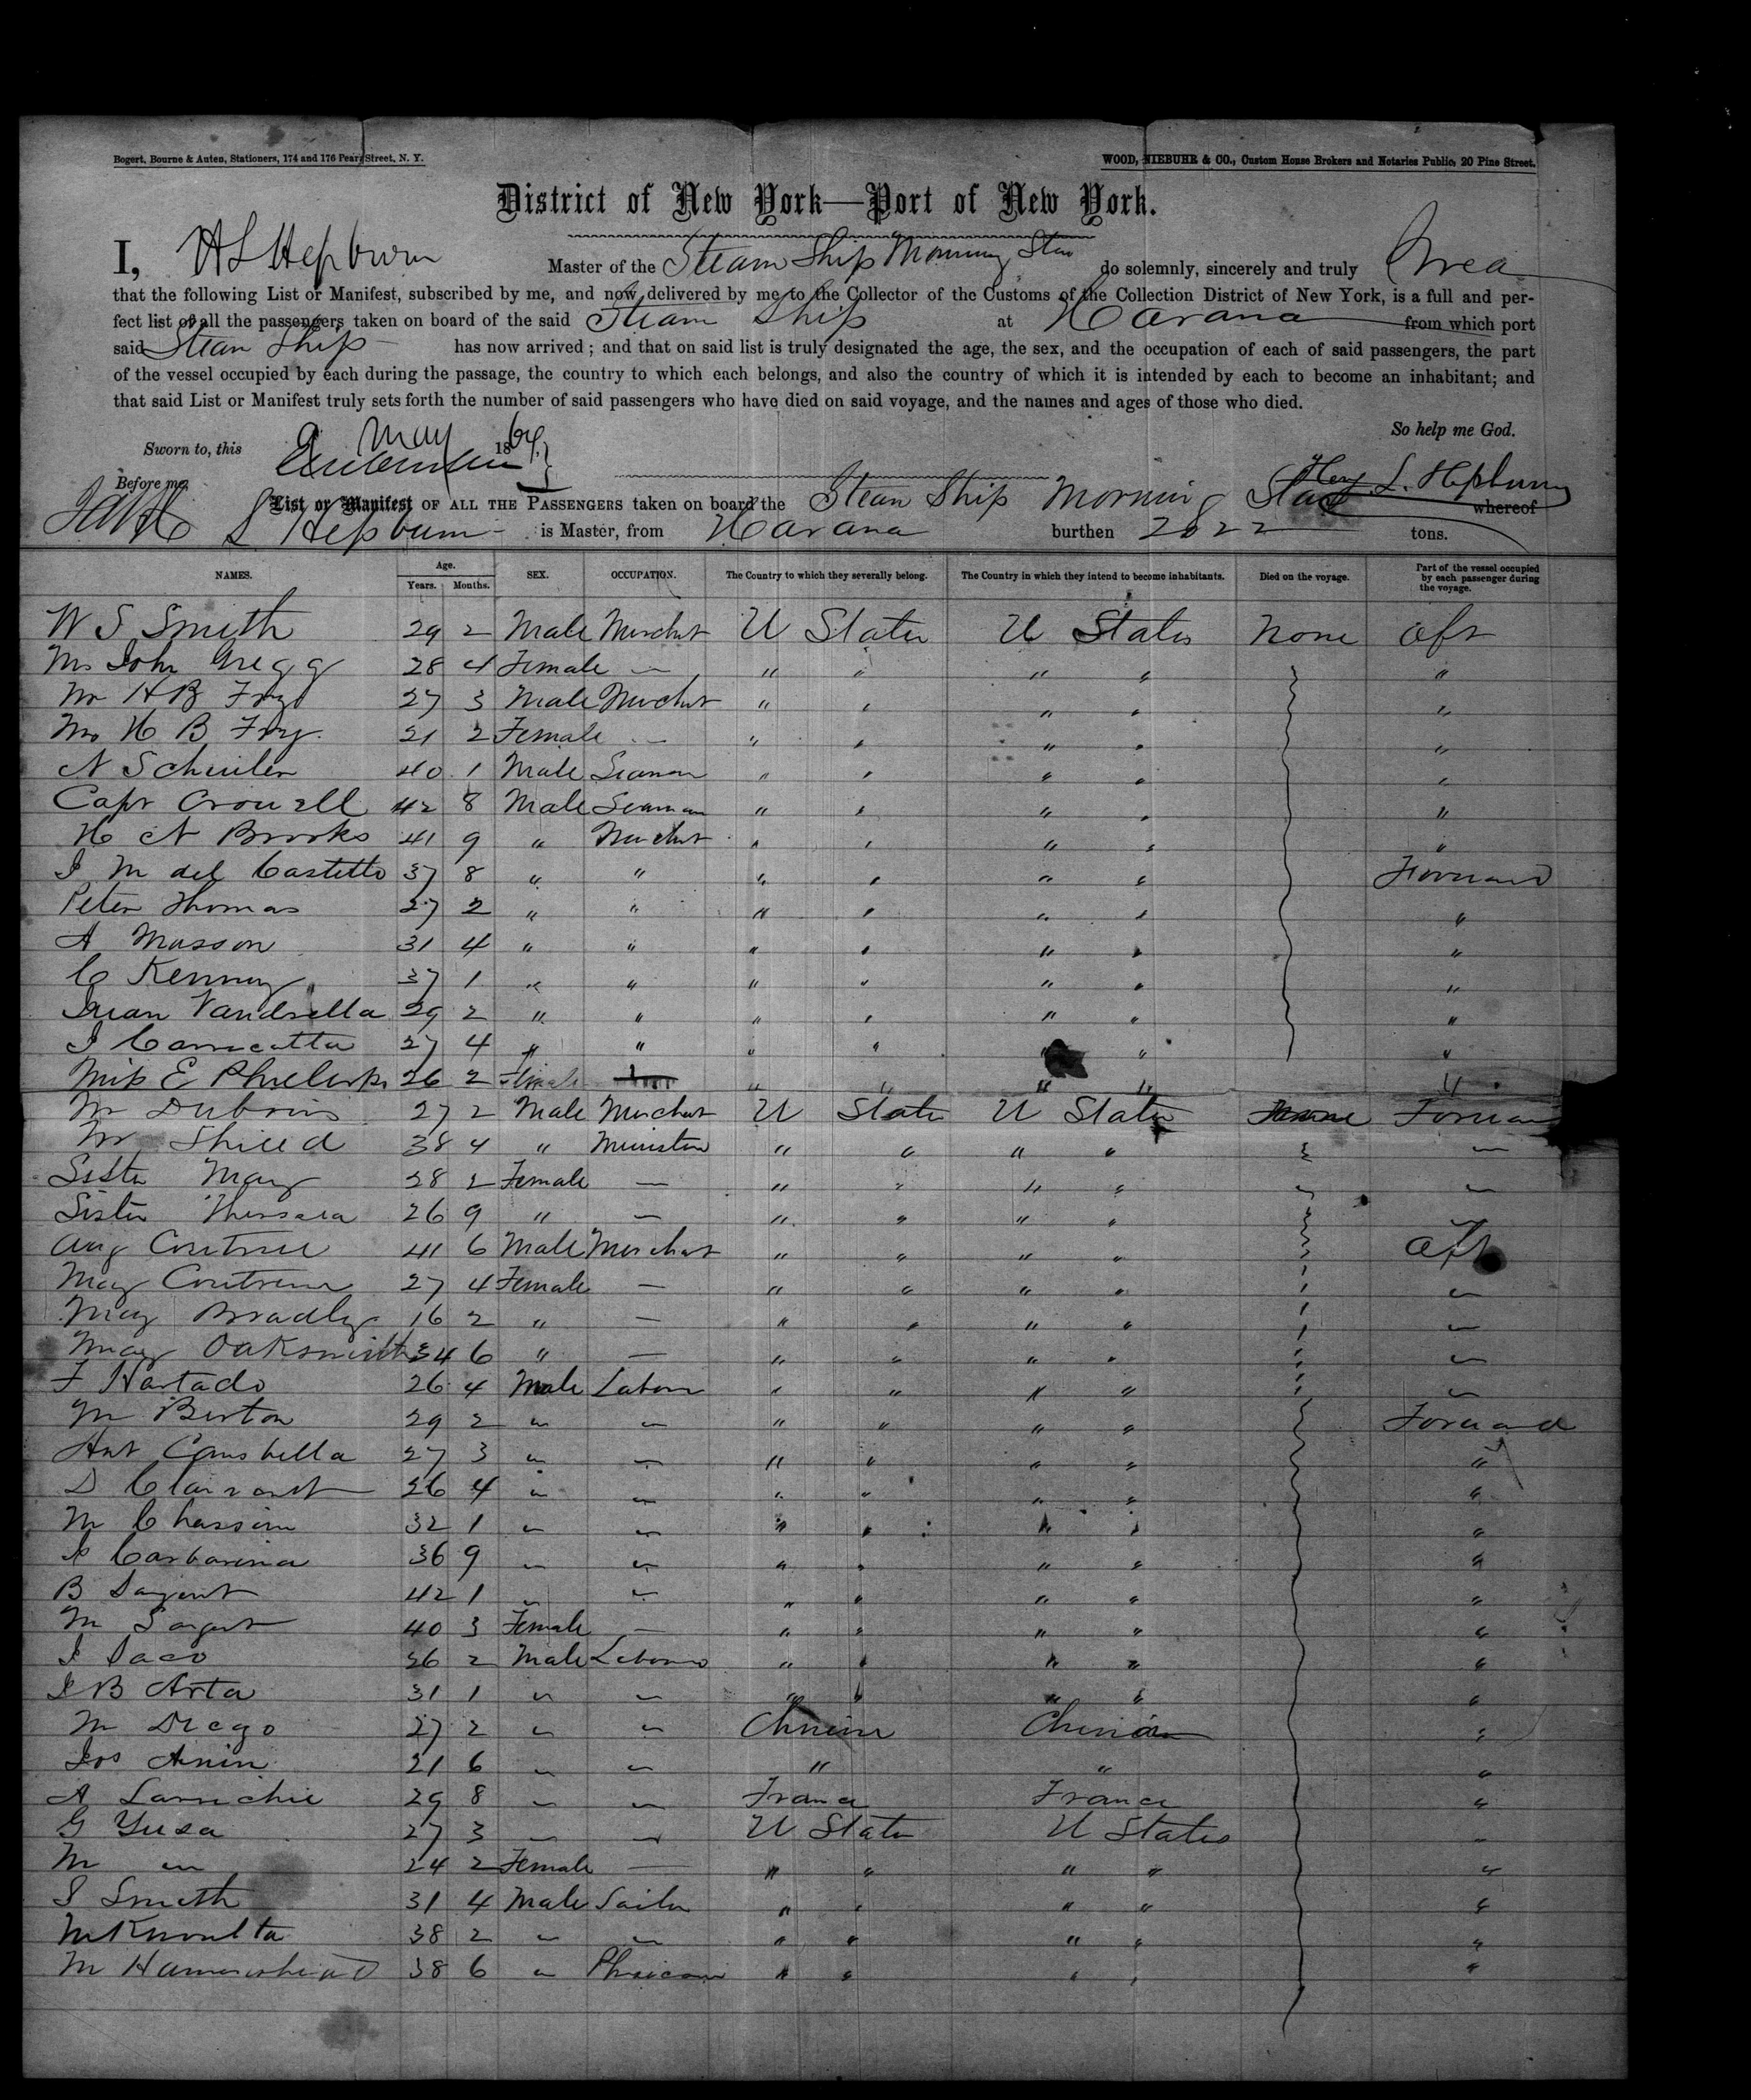 Bogert, Bourne & Auten, Stationers, 174 and 176 Pearl Street, N. Y.
WOOD, NIEBUHR & CO., Custom House Brokers and Notaries Public, 20 Pine Street.
District of New York—Port of New York.
I, H L Hepburn Master of the Steam Ship Morning Star do solemnly, sincerely and truly
that the following List or Manifest, subscribed by me, and now delivered by me to the Collector of the Customs of the Collection District of New York, is a full and per-
fect list of all the passengers taken on board of the said Steam Ship at Havana from which port
said Steam Ship has now arrived ; and that on said list is truly designated the age, the sex, and the occupation of each of said passengers, the part
of the vessel occupied by each during the passage, the country to which each belongs, and also the country of which it is intended by each to become an inhabitant; and
that said List or Manifest truly sets forth the number of said passengers who have died on said voyage, and the names and ages of those who died.
So help me God.
Sworn to, this 9 May 1864
Before me,
Hey L. Hepburn
List or Manifest OF ALL THE PASSENGERS taken on board the Steam Ship Morning Star whereof
L Hepburn is Master, from Havana burthen 2022 tons.
NAMES. Age. Years. Months. SEX. OCCUPATION. The Country to which they severally belong. The Country in which they intend to become inhabitants. Died on the voyage. Part of the vessel occupied by each passenger during the voyage.
W S Smith 29 2 Male Merchat U States U States None Aft
Mrs John Gregg 28 4 Female — " " " " "
Mr H B Fry 27 3 Male Merchat " " " " "
Mrs H B Fry 21 2 Female — " " " " "
N 40 1 Male Seaman " " " " "
Capt Crowell 42 8 Male Seaman " " " " "
H N Brooks 41 9 " Merchat " " " " "
J M del Castillo 37 8 " " " " " " Forward
Peter Thomas 27 2 " " " " " " "
A Masson 31 4 " " " " " " "
C Kenny 37 1 " " " " " " "
Juan Vandrella 29 2 " " " " " " "
J 27 4 " " " " " " "
Miss E 26 2 Female " " " " "
Mr Dubois 27 2 Male Merchat U State U State None Forward
Mr Shield 38 4 " Minister " " " " "
Sister Mary 28 2 Female — " " " " "
Sister 26 9 " — " " " " "
Aug 41 6 Male Merchat " " " " Aft
Mary 27 4 Female — " " " " "
Mary Bradley 16 2 " — " " " " "
Mary Oaksmith 34 6 " — " " " " "
F Hartado 26 4 Male Labour " " " " "
M Berton 29 2 " " " " " " Forward
Ant 27 3 " " " " " " "
D 26 4 " " " " " " "
M 32 1 " " " " " " "
36 9 " " " " " " "
B Sargent 42 1 " " " " " " "
M Sargent 40 3 Female — " " " " "
J Paco 26 2 Male " " " " "
J B Arta 31 1 " " " " " " "
M Diego 27 2 " " China China "
Jos 21 6 " " " " "
A 29 8 " " France France "
G Yusa 27 3 " " U State U States "
M " 24 2 Female — " " " " "
S Smith 31 4 Male Sailor " " " " "
38 2 " " " " " " "
M 38 6 " " " " " "